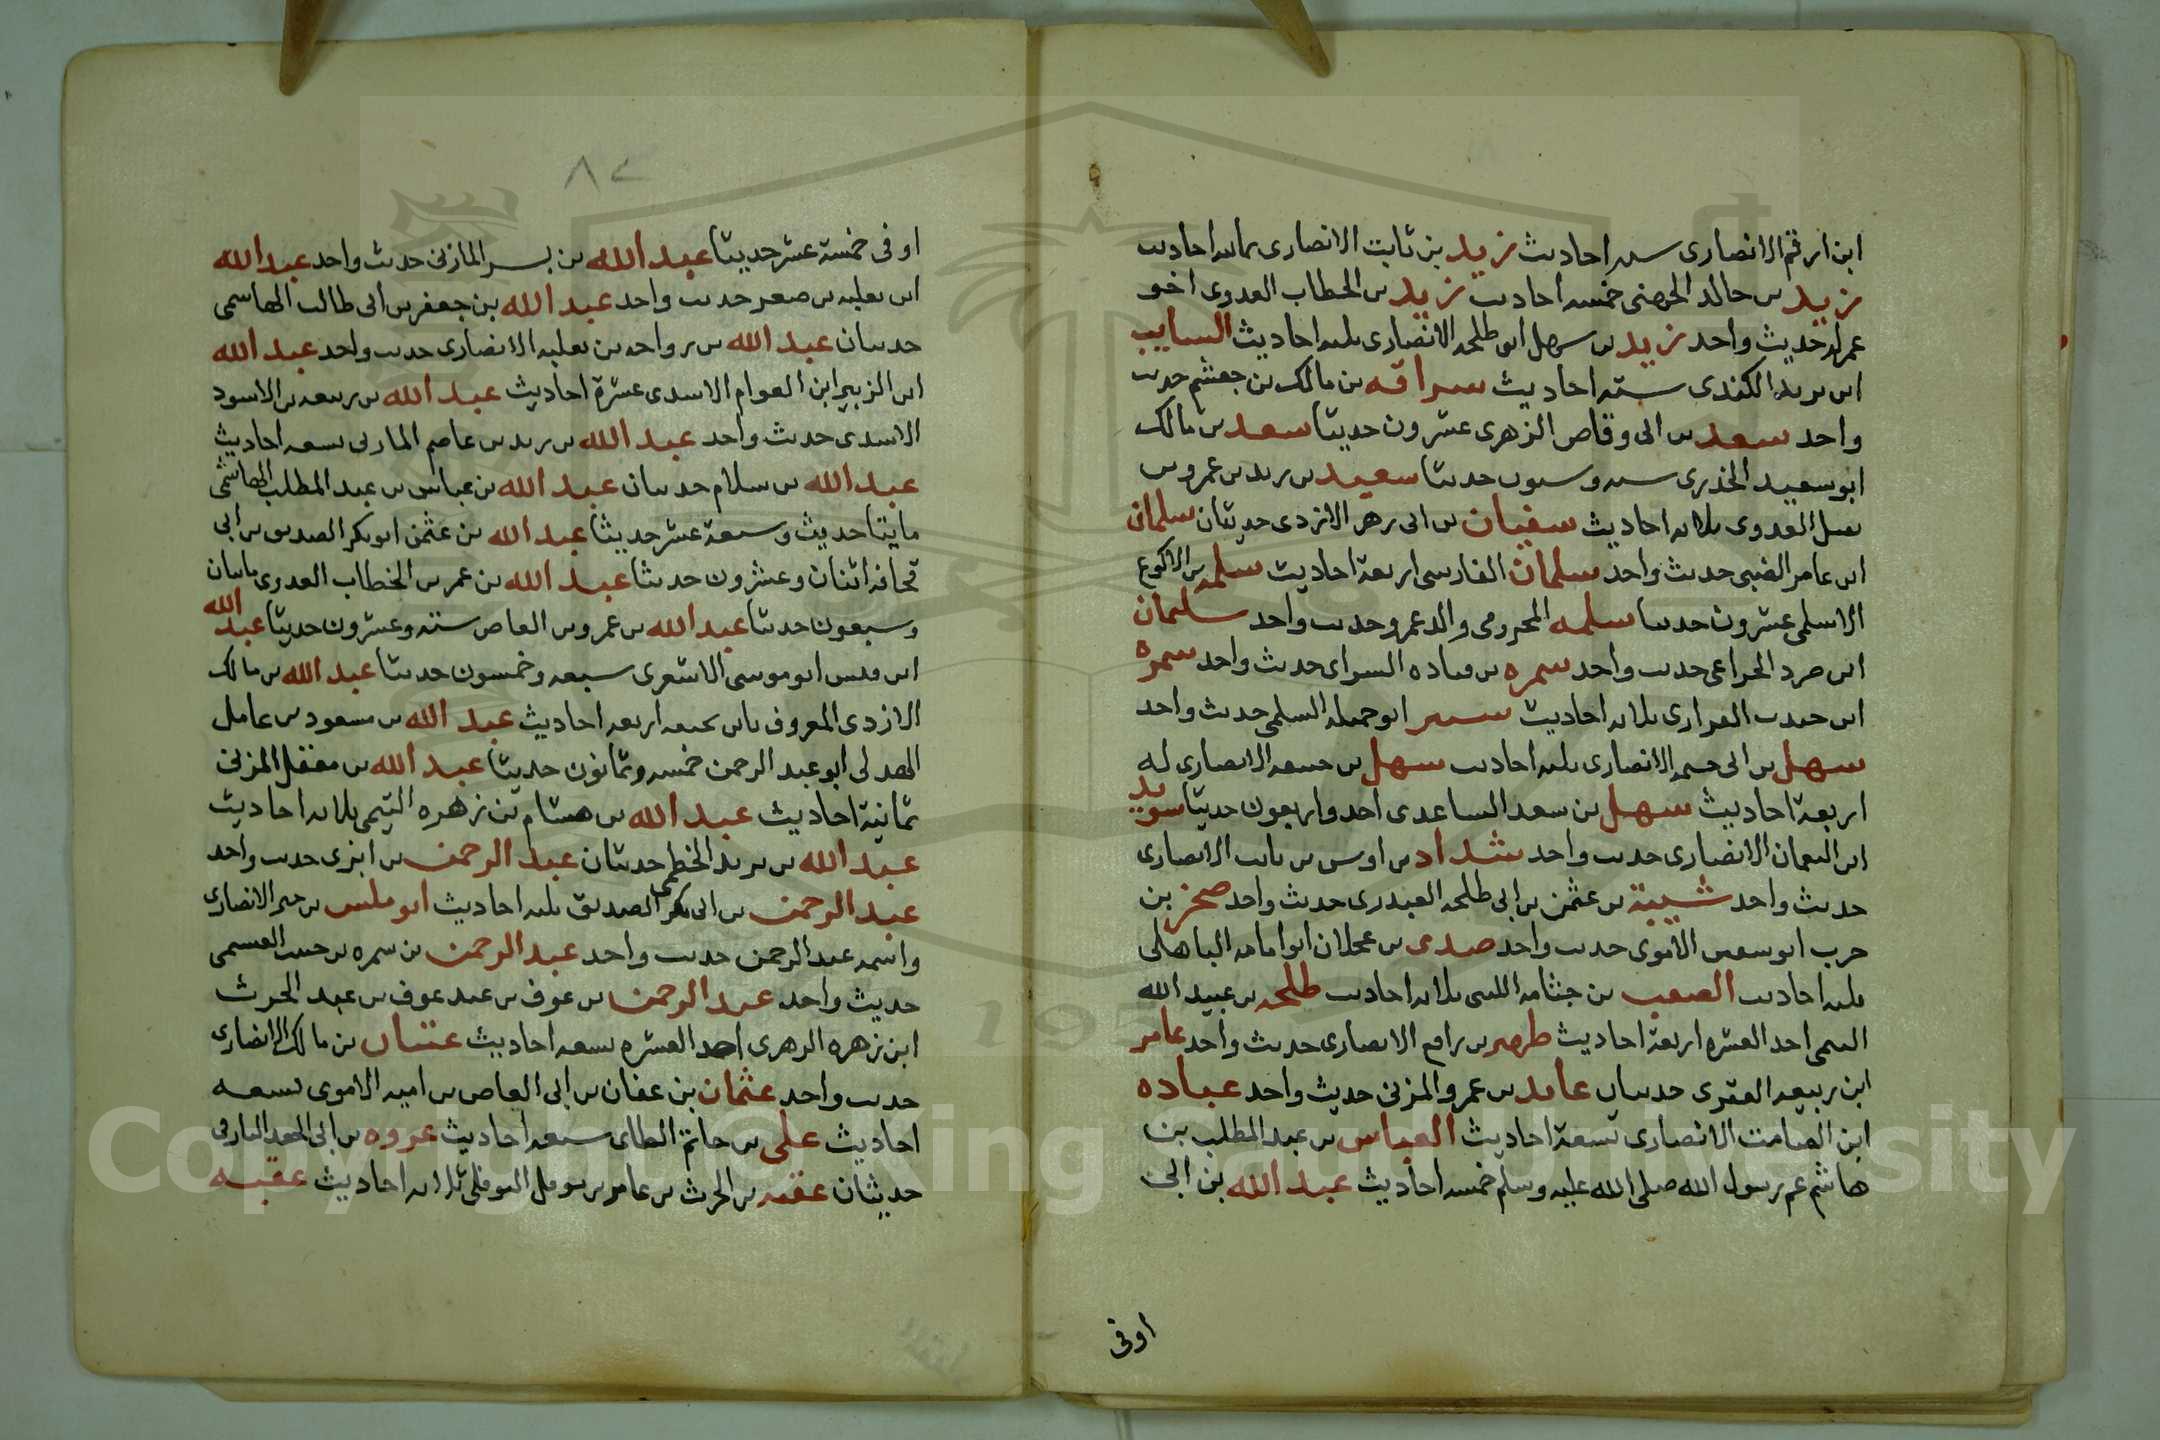 ابن ارقم الانصارى سته احاديث زيد بن ثابت الانصارى ثمانيه احاديث
زيد بن خالد الجهنى خمسه احاديث زيد بن الخطاب العدوى اخو
عمر له حديث واحد زيد بن سهل ابو طلحه الانصارى ثلثه احاديث السايب
ابن يزيد الكندى سته احاديث سراقه بن مالك بن جعشم حديث
واحد سعد بن ابى وقاص الزهرى عشرون حديثا سعد بن مالك
ابو سعيد الخدرى سته وستون حديثا سعيد بن زيد بن عمرو بن
نفيل العدوى ثلاثه احاديث سفيان بن ابى زهير الازدى حديثان سلمان
ابن عامر الضبى حديث واحد سلمان الفارسى اربعة احاديث سلمه بن الاكوع
الاسلمى عشرون حديثا سلمه المخزومى والد عمرو حديث واحد سليمان
ابن صرد الخزاعى حديث واحد سمره بن جناده السواى حديث واحد سمره
ابن جندب الفزارى ثلاثه احاديث سنين ابو جميله السلمى حديث واحد
سهل بن ابى حثمه الانصارى ثلثه احاديث سهل بن حنيف الانصارى له
اربعة احاديث سهل بن سعد الساعدى احد واربعون حديثا سويد
ابن النعمان الانصارى حديث واحد شداد بن اوس بن ثابت الانصارى
حديث واحد شيبة بن عثمن بن ابى طلحه العبدرى حديث واحد صخر بن
حرب ابو سفين الاموى حديث واحد صدى بن عجلان ابو امامه الباهلى
ثلثه احاديث الصعب بن جثامه الليثى ثلاثه احاديث طلحه بن عبيد الله
التيمى احد العشره اربعة احاديث ظهير بن رافع الانصارى حديث واحد عامر
ابن ربيعه العنزى حديثان عائد بن عمرو المزنى حديث واحد عباده
ابن الصامت الانصارى تسعة احاديث العباس بن عبد المطلب بن
هاشم عم رسول الله صلى الله عليه وسلم خمسه احاديث عبد الله بن ابى
اوفى
٨٢
اوفى خمسة عشر حديثا عبد الله بن بسر المازنى حديث واحد عبد الله
ابن ثعلبه بن صعير حديث واحد عبد الله بن جعفر بن ابى طالب الهاشمى
حديثان عبد الله بن رواحه بن ثعلبه الانصارى حديث واحد عبد الله
ابن الزبير ابن العوام الاسدى عشرة احاديث عبد الله بن زمعه بن الاسود
الاسدى حديث واحد عبد الله بن زيد بن عاصم المازنى تسعه احاديث
عبد الله بن سلام حديثان عبد الله بن عباس بن عبد المطلب الهاشمى
مايتا حديث وسبعة عشر حديثا عبد الله بن عثمن ابو بكر الصديق بن ابى
قحافه اثنان وعشرون حديثا عبد الله بن عمر بن الخطاب العدوى مايتان
وسبعون حديثا عبد الله بن عمرو بن العاص ستة وعشرون حديثا عبد الله
ابن قيس ابو موسى الاشعرى سبعه وخمسون حديثا عبد الله بن مالك
الازدى المعروف بابن بحينه اربعه احاديث عبد الله بن مسعود بن غافل
الهذلى ابو عبد الرحمن خمسه وثمانون حديثا عبد الله بن مغفل المزنى
ثمانية احاديث عبد الله بن هشام بن زهره التيمى ثلاثه احاديث
عبد الله بن يزيد الخطمى حديثان عبد الرحمن بن ابزى حديث واحد
عبد الرحمن بن ابى بكر الصديق ثلثه احاديث ابو عبس بن جبر الانصارى
واسمه عبد الرحمن حديث واحد عبد الرحمن بن سمره بن حبيب العبشمى
حديث واحد عبد الرحمن بن عوف بن عبد عوف بن عبد الحرث
ابن زهره الزهرى احد العشره تسعه احاديث عتبان بن مالك الانصارى
حديث واحد عثمان بن عفان بن ابى العاص بن اميه الاموى تسعه
احاديث على بن حاتم الطائى سبعه احاديث عروه بن ابى الجعد البارقى
حديثان عقبه بن الحرث بن عامر بن نوفل النوفلى ثلاثه احاديث عقبه
Copyright © King Saud University